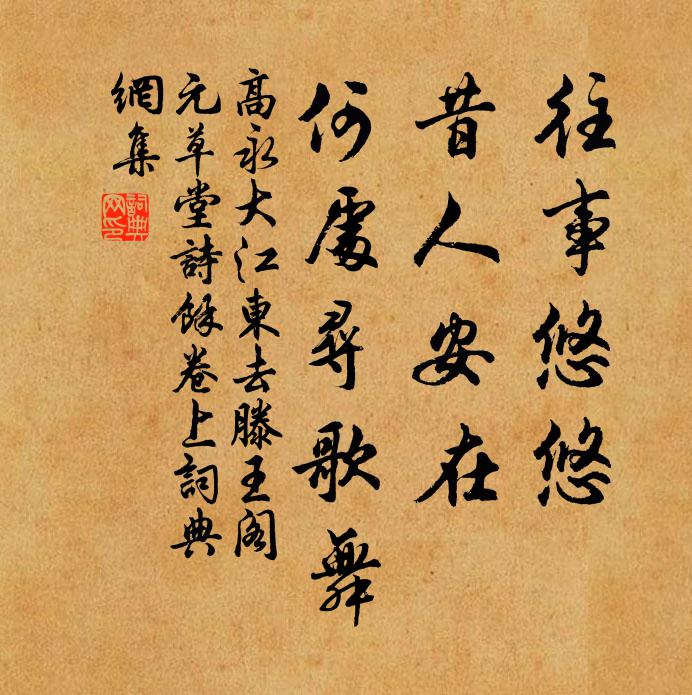 往事悠悠
昔人安在
何處尋歌舞
高永大江東去滕王阁
元草堂詩餘卷上詞典
網集
詞典
网印